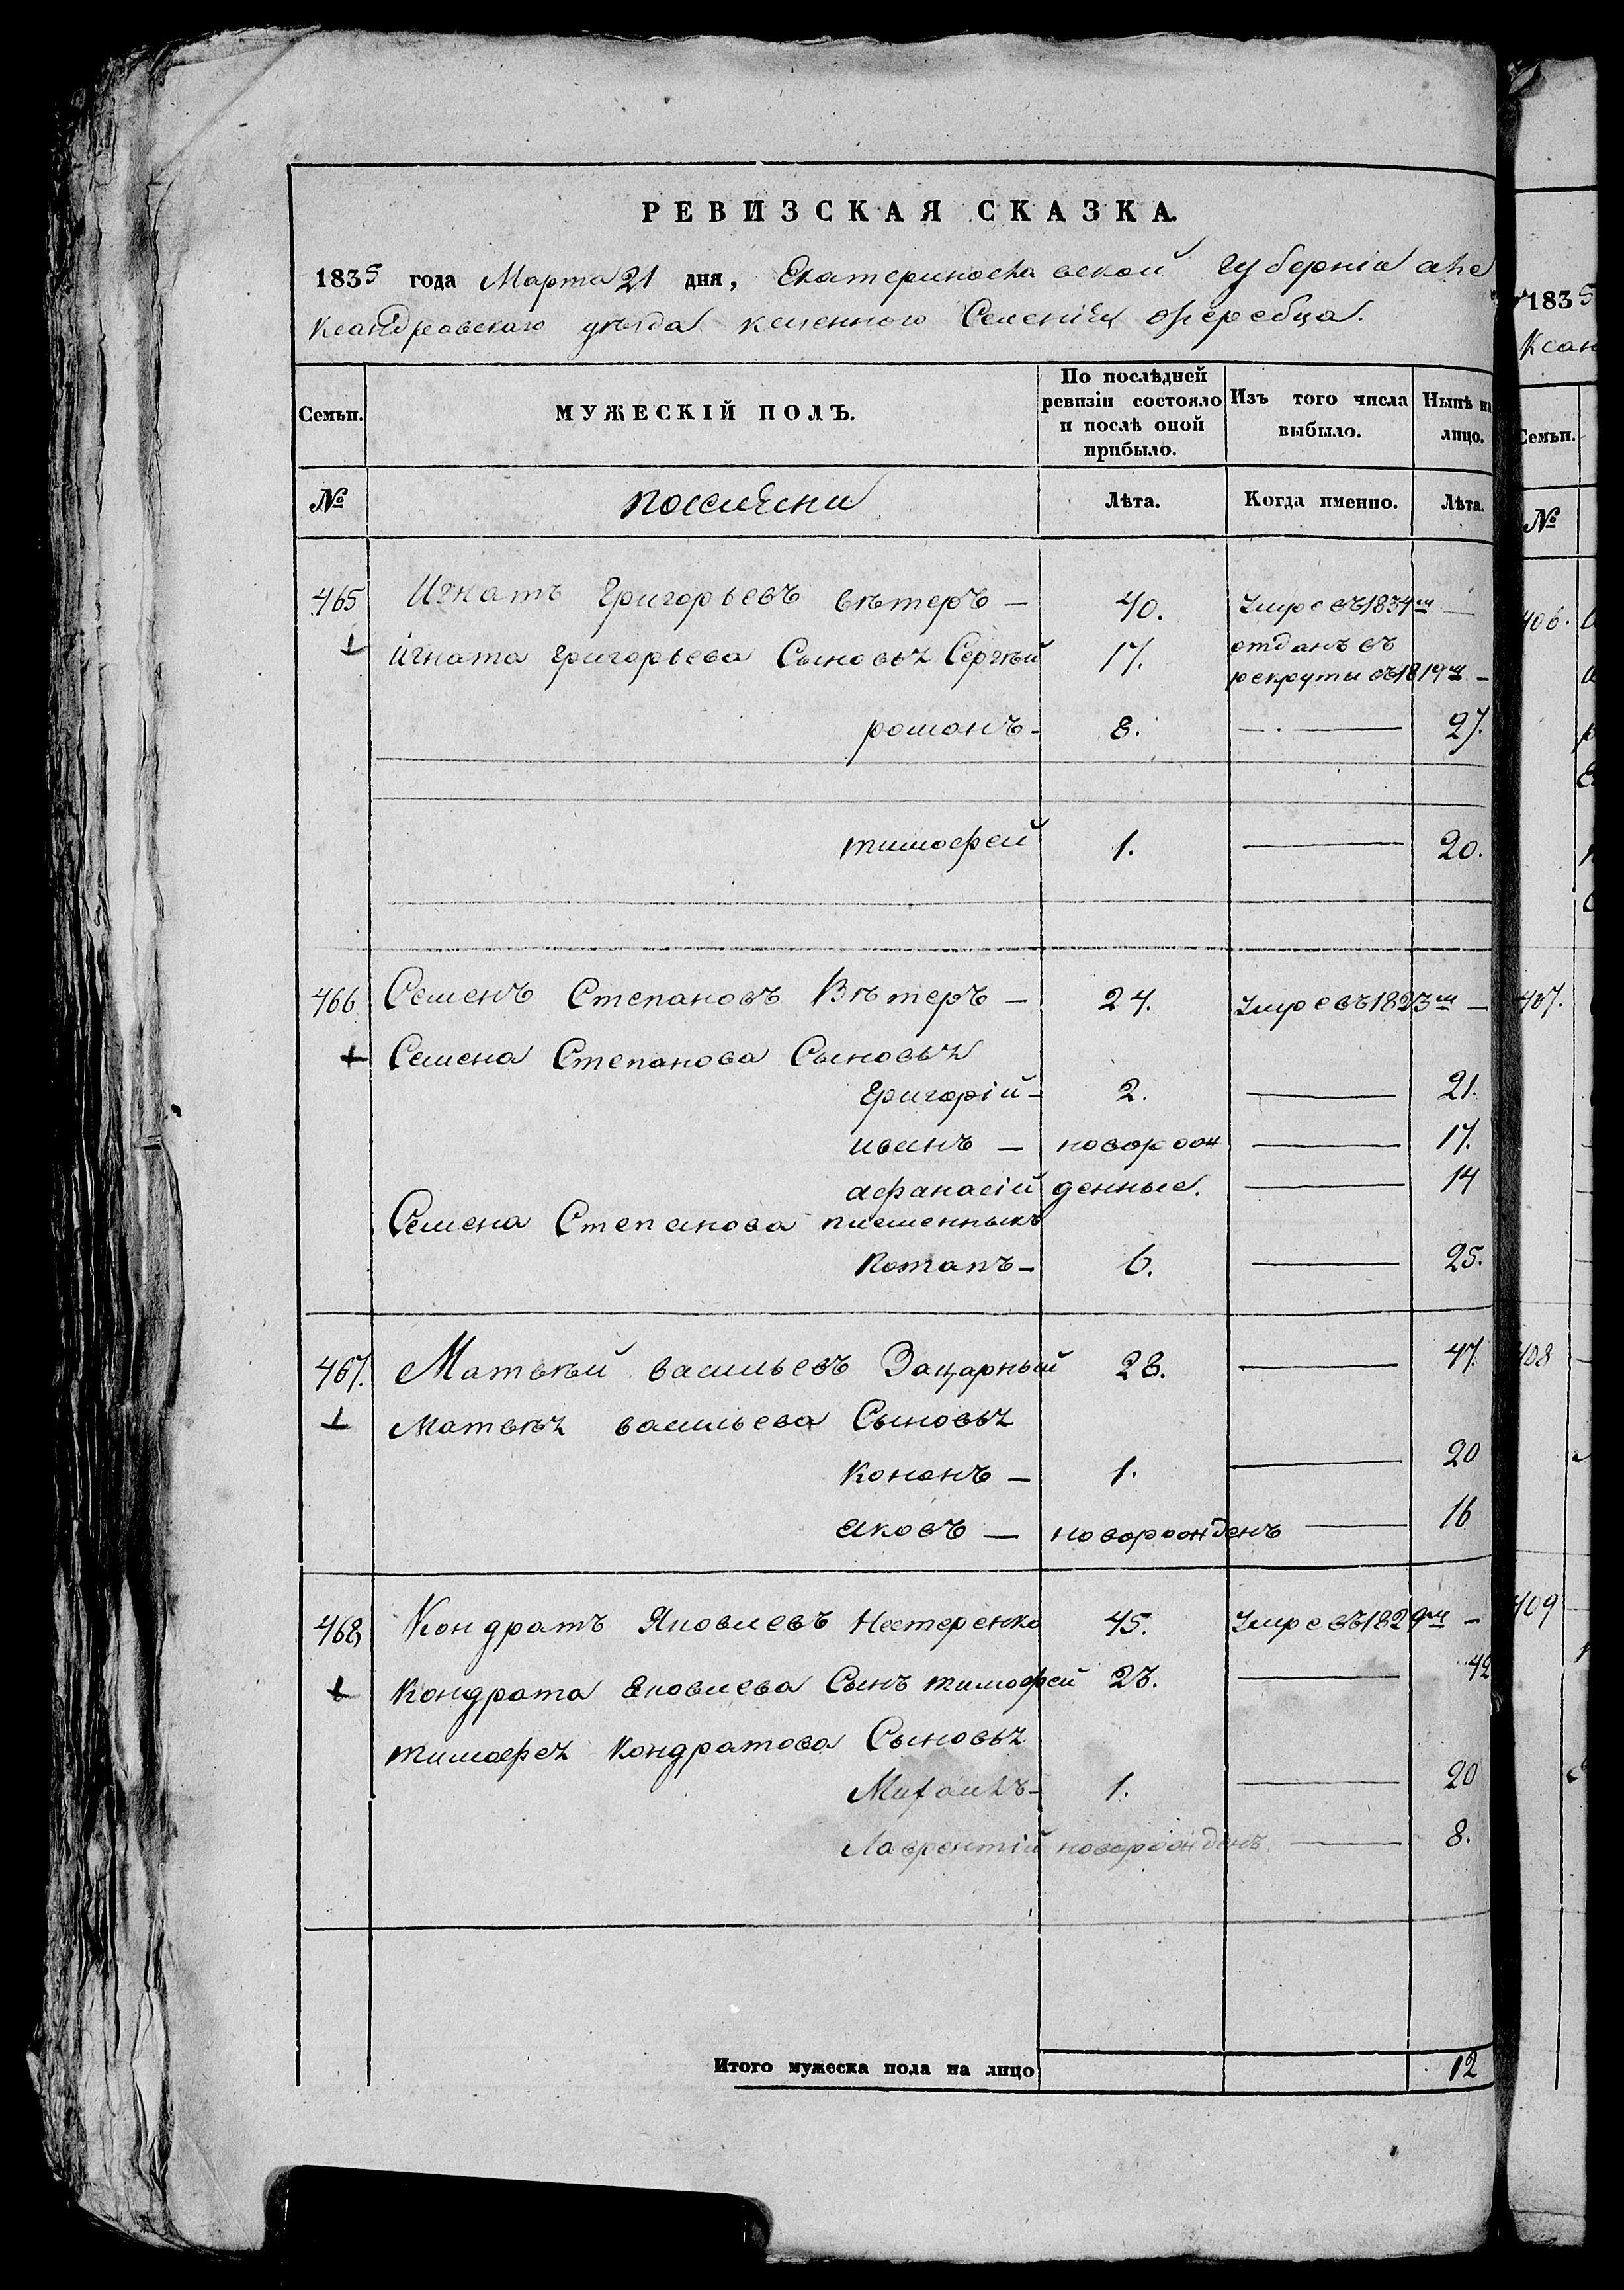 РЕВИЗСКАЯ СКАЗКА.
1835 года Марта 21 дня, Екатеринославской губерніи але
ксандровскаго уѣзда казенного Селенія жеребца.
Семьи. МУЖЕСКІЙ ПОЛЪ. По послѣдней ревизіи состояло и послѣ оной прибыло. Изъ того числа выбыло. Нынѣ на лицо.
№ поселяни Лѣта. Когда именно. Лѣта.
465 Игнатъ Григорьевъ вѣтеръ — 40. умре въ 1834м —
Игната Григорьева Сыновья Сергѣй 17. отданъ въ рекруты въ 1819м —
романъ — 8. — 27.
тимофей 1. — 20.
466 Семенъ Степановъ Вѣтеръ — 24. умре въ 1823м —
Семена Степанова Сыновья
Григорій — 2. — 21.
иванъ —новорож — 17.
афанасій денные. — 14
Семена Степанова племенникъ
потапъ — 6. — 25.
467. Матвѣй васильевъ Зацарный 28. — 47.
Матвѣя васильева Сыновья
кононъ — 1. — 20
яковъ — новорожденъ — 16
468 Кондратъ Яковлевъ Нестеренко 45. умре въ 1829м —
кондрата Яковлева Сынъ тимофей 23. — 42
тимофея кондратова Сыновья
Михаилъ — 1. — 20
Лаврентій новорожденъ — 8.
Итого мужеска пола на лицо 12
1835
Ксан
Семьи.
№
406.
407.
408
409